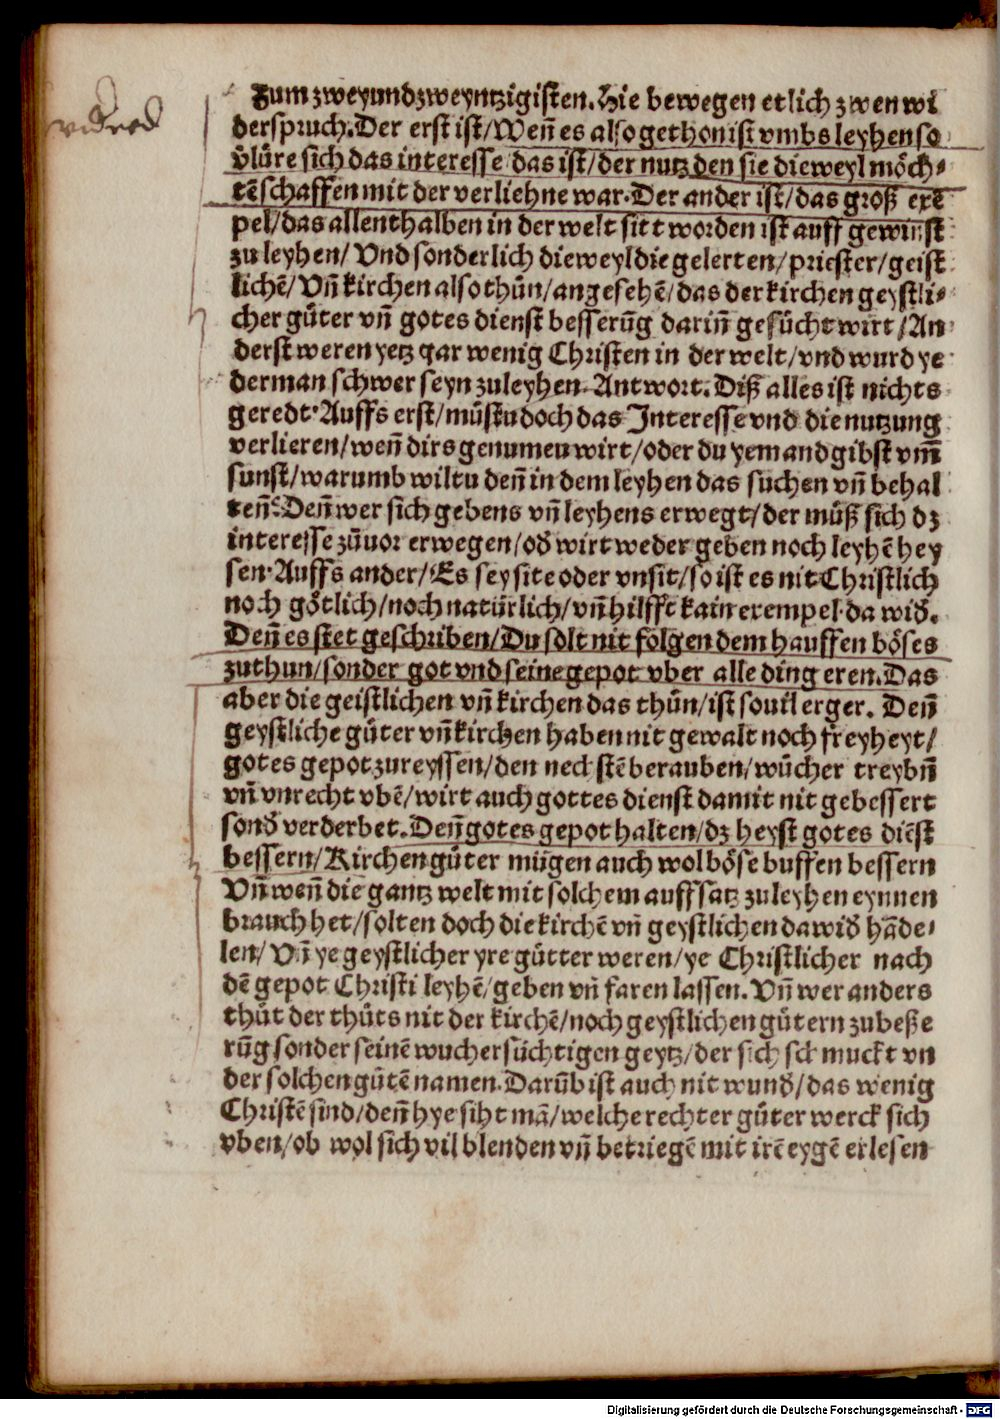 Zum zweyundzweyntzigisten. Hie bewegen etlich zwen wi
derspruch. Der erst ist/ Weñ es also gethon ist vmbs leyhen so
v̈lüre sich das interesse das ist/ der nutz den sie dieweyl möch⸗
tē schaffen mit der verliehne war. Der ander ist/ das groß exē
pel/ das allenthalben in der welt sitt worden ist auff gewinst
zu leyhen/ Vnd sonderlich dieweyl die gelerten/ priester/ geist
lichē/ Vñ kirchen also thůn/ angesehē/ das der kirchen geystli⸗
cher gůter vñ gotes dienst besserūg dariñ gesůcht wirt/ An
derst weren yetz gar wenig Christen in der welt/ vnd wurd ye
derman schwer seyn zuleyhen. Antwort. Diß alles ist nichts
geredt. Auffs erst/ můstu doch das Interesse vnd die nutzung
verlieren/ weñ dirs genumen wirt/ oder du yemand gibst vm̄
sunst/ warumb wiltu deñ in dem leyhen das suchen vñ behal
teñ. Deñ wer sich gebens vñ leyhens erwegt/ der můß sich dz
interesse zůuor erwegen/ od̄ wirt weder geben noch leyhē hey
sen. Auffs ander/ Es sey site oder vnsit/ so ist es nit Christlich
noch götlich/ noch natürlich/ vñ hilfft kain exempel da wid̄.
Deñ es stet geschriben/ Du solt nit folgen dem hauffen böses
zuthun/ sonder got vnd seine gepot vber alle ding eren. Das
aber die geistlichen vñ kirchen das thůn/ ist souil erger. Deñ
geystliche gůter vñ kirchen haben nit gewalt noch freyheyt/
gotes gepot zureyssen/ den nechstē berauben/ wůcher treybñ
vñ vnrecht vbē/ wirt auch gottes dienst damit nit gebessert
sond̄ verderbet. Deñ gotes gepot halten/ dz heyst gotes diēst
bessern/ Kirchen gůter mügen auch wol böse buffen bessern
Vñ weñ die gantz welt mit solchem auffsatz zuleyhen eynnen
brauch het/ solten doch die kirchē vñ geystlichen dawid̄ hāde⸗
len/ Vñ ye geystlicher yre gůtter weren/ ye Christlicher nach
dē gepot Christi leyhē/ geben vñ faren lassen. Vñ wer anders
thůt der thůts nit der kirchē/ noch geystlichen gůtern zubeße
rūg sonder seinē wuchersüchtigen geytz/ der sich schmuckt vn
der solchen gůtē namen. Darūb ist auch nit wund̄/ das wenig
Christē sind/ deñ hye siht mā/ welche rechter gůter werck sich
vben/ ob wol sich vil blenden vñ betriegē mit irē eygē erlesen
Digitalisierung gefördert durch die Deutsche Forschungsgemeinschaft - DFG